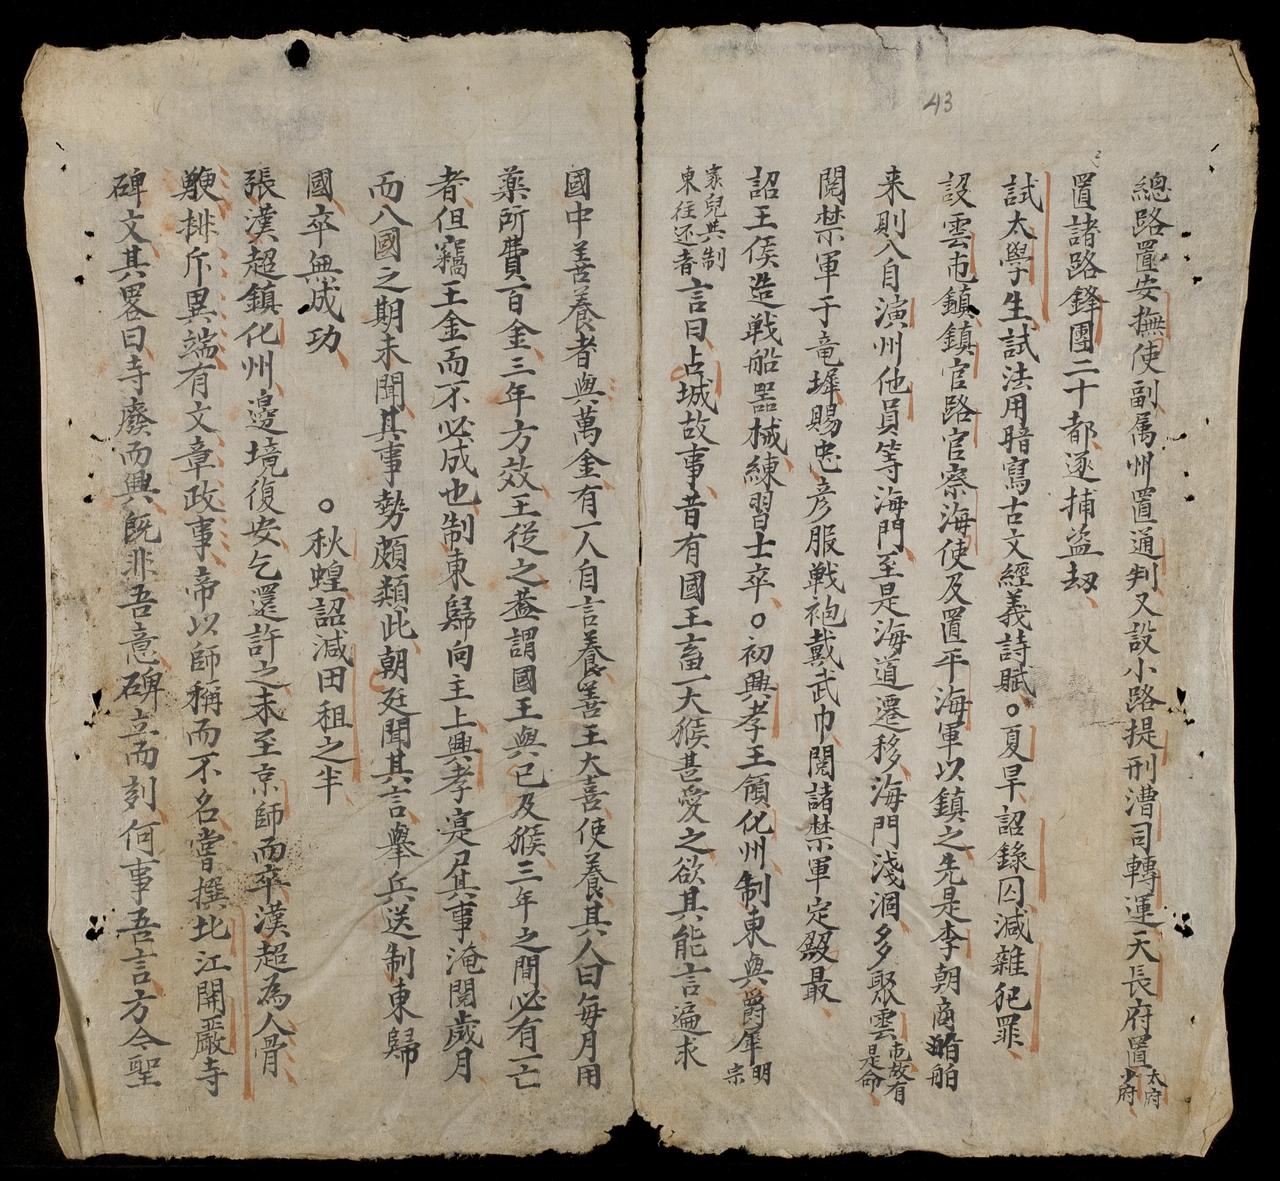 43
總路置安撫使副属州置通判又設小路提刑漕司轉運天長府置太府少府
置諸路鋒團二十都逐捕盗刼
試太學生試法用暗寫古文經義詩賦。夏旱詔錄囚減雜犯罪
設雲屯鎮鎮官路官察海使及置平海軍以鎮之先是李朝商舶舶
来則入自演州他員等海門至是海道遷移海門淺涸多聚雲屯故有是命
閱禁軍于竜墀賜忠彦服戦袍戴武巾閱諸禁軍定殿最
詔王侯造戦船噐械練習士卒。初興孝王領化州制東與爵犀明宗
家兒其制東往还者言曰占城故事昔有國王畜一大猴甚愛之欲其能言遍求
國中善養者與萬金有一人自言養善王大喜使養其人曰每月用
藥所費百金三年方效王從之葢謂國王與已及猴三年之間必有一亡
者但竊王金而不必成也制東歸向主上興孝寔召其事淹閱歲月
而八國之期未聞其事勢頗類此朝廷聞其言舉兵送制東歸
國卒無成功 。秋蝗詔減田租之半
張漢超鎮化州邊境復安乞還許之未至京師而卒漢超為人骨
鯁排斥異端有文章政事帝以師稱而不名嘗撰北江開嚴寺
碑文其畧曰寺廢而興既非吾意碑立而刻何事吾言方今聖